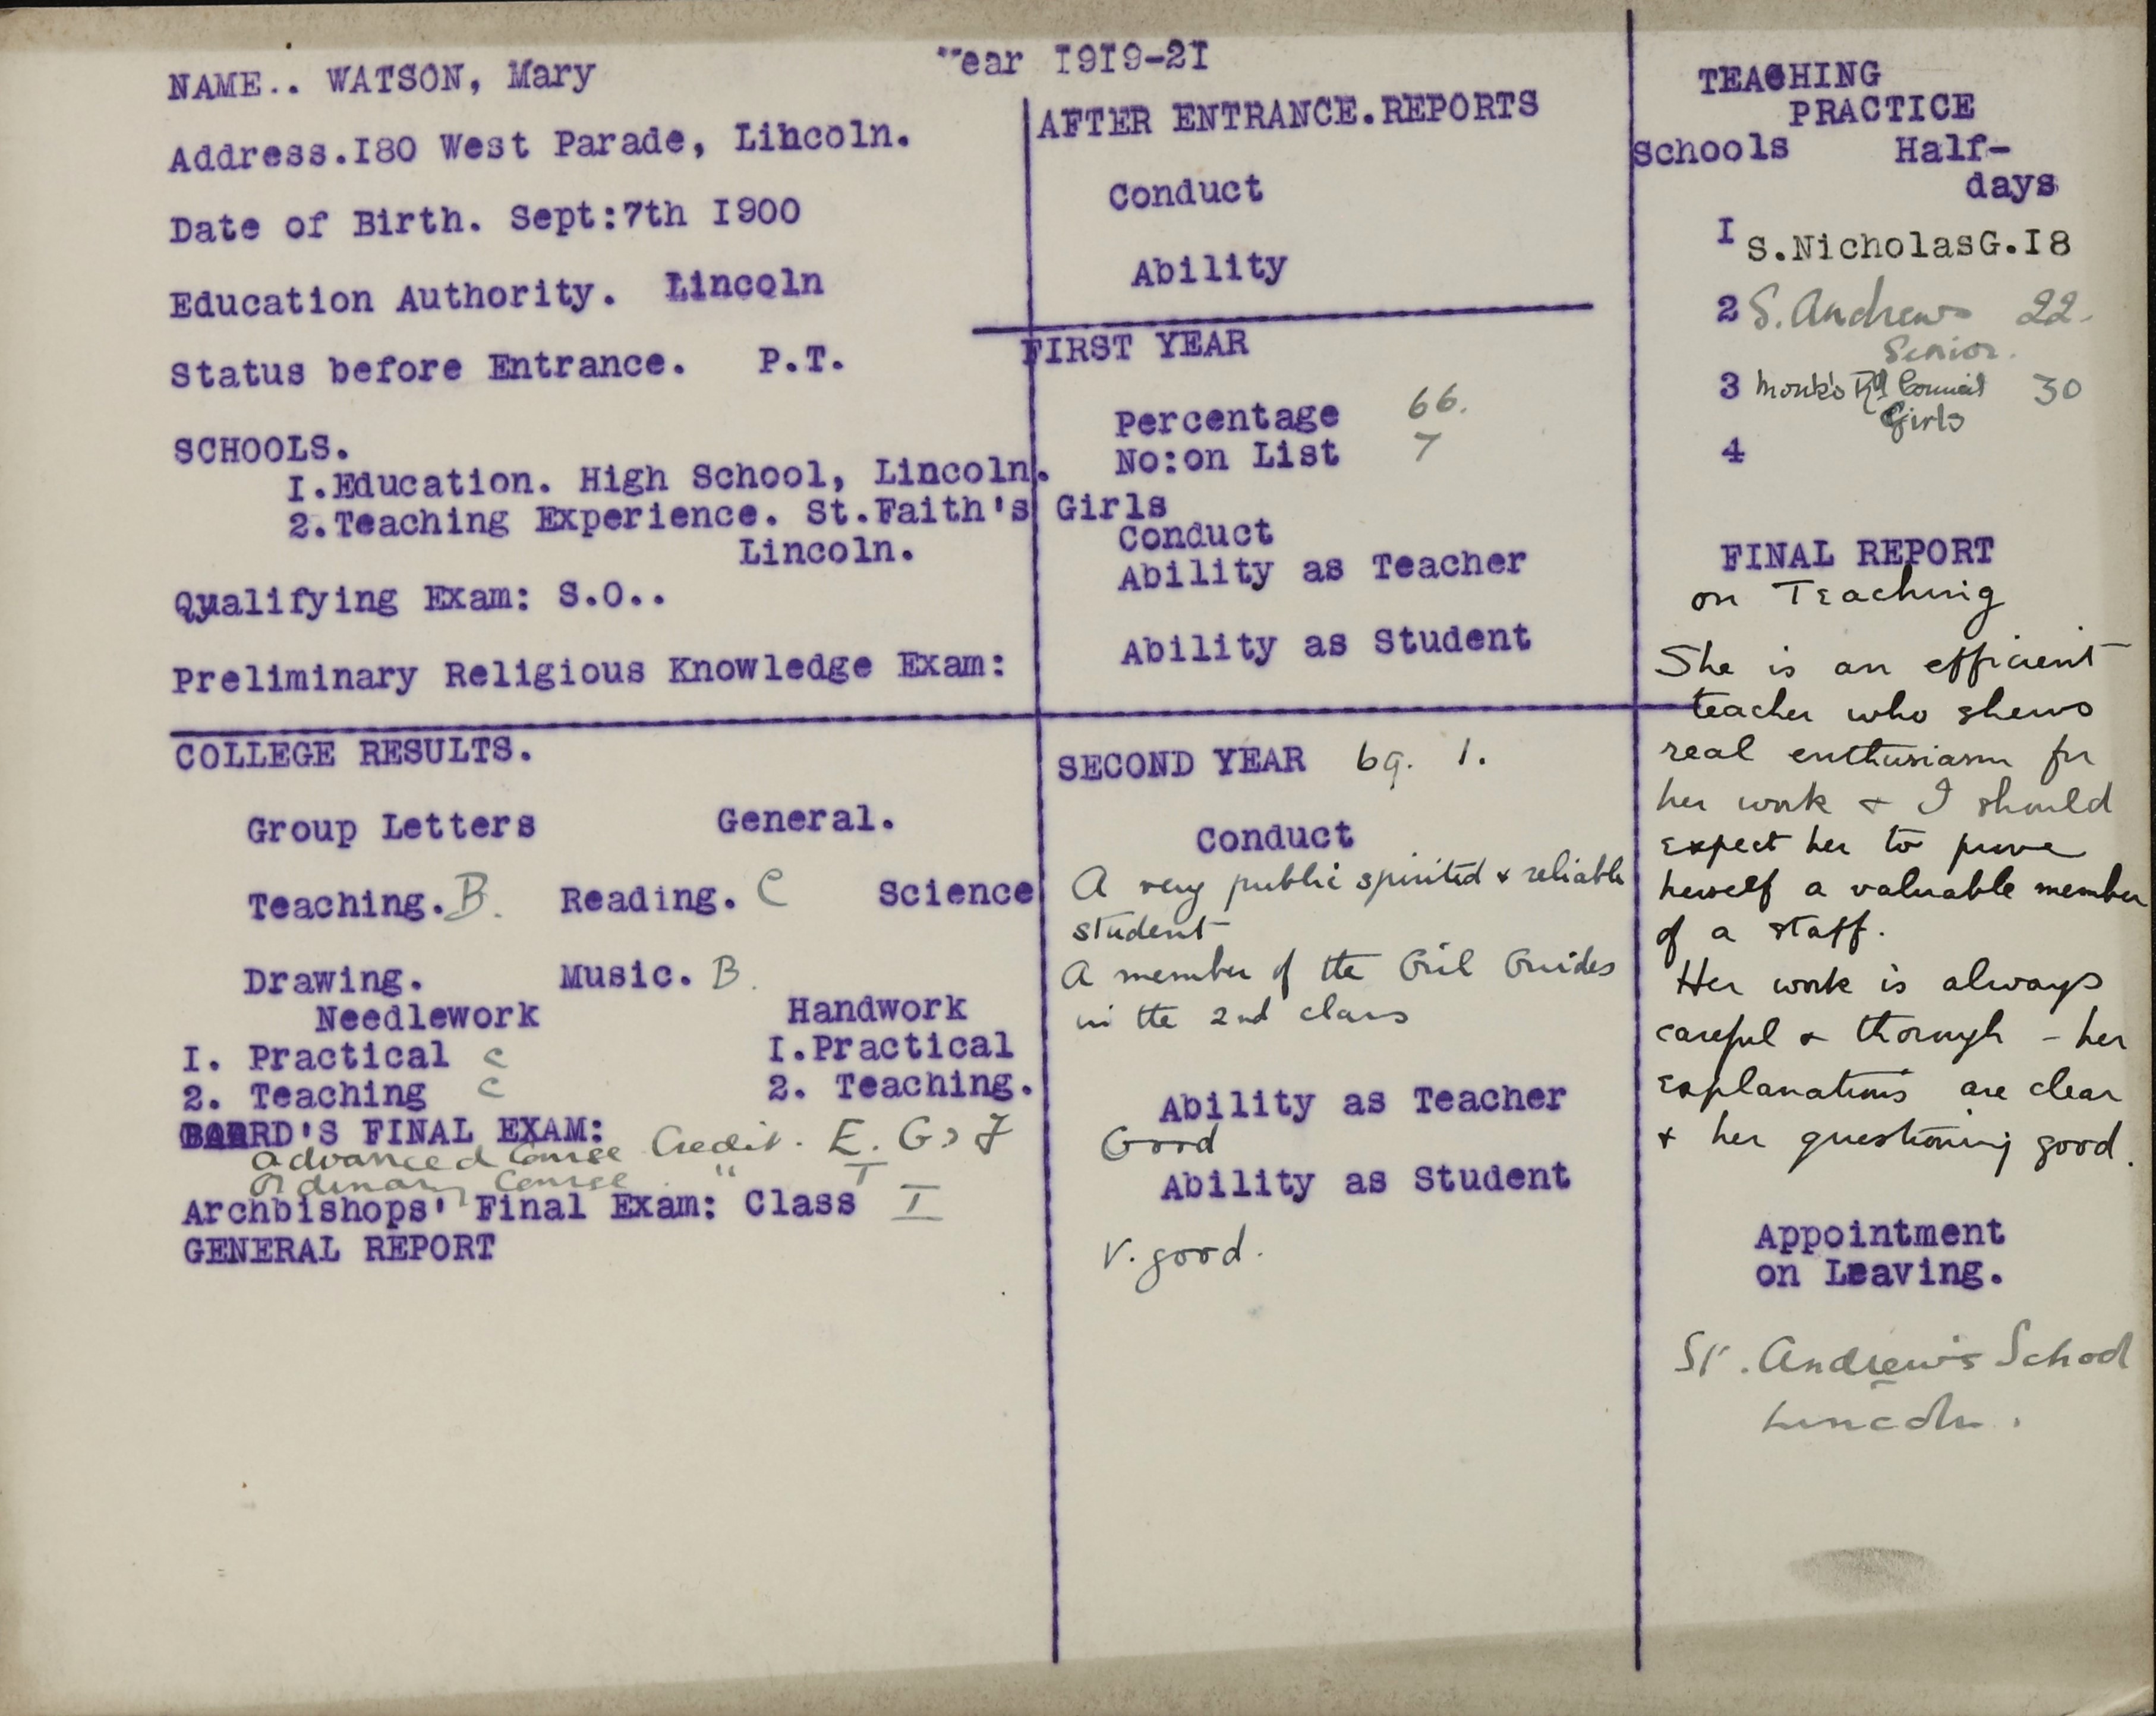 NAME.. WATSON, Mary
Address.I80 West Parade, Lincoln.
Date of Birth. Sept:7th I900
Education Authority. Lincoln
Status before Entrance. P.T.
SCHOOLS.
I.Education. High School, Lincoln.
2.Teaching Experience. St.Faith's Girls
Lincoln.
Qualifying Exam: S.O..
Preliminary Religious Knowledge Exam:
COLLEGE RESULTS.
Group Letters General.
Teaching. B. Reading. C Science
Drawing. Music. B.
Needlework Handwork
I. Practical C I.Practical
2. Teaching C 2. Teaching.
BOARD'S FINAL EXAM:
Advanced Course Credit. E. G
Ordinary Course " T
Archbishops' Final Exam: Class I
GENERAL REPORT
Year I9I9-2I
AFTER ENTRANCE.REPORTS
Conduct
Ability
FIRST YEAR
Percentage 66.
No:on List 7
Conduct
Ability as Teacher
Ability as Student
SECOND YEAR 69. 1.
Conduct
A very public spirited & reliable
student
A member of the Girl Guides
in the 2nd class
Ability as Teacher
Good
Ability as Student
V. good.
TEACHING
PRACTICE
Schools Half-
days
I S.NicholasG.I8
2 S. Andrews 22.
Senior.
3 Monk's Rd Council 30
Girls
4
FINAL REPORT
on Teaching
She is an efficient
teacher who shews
real enthusiasm for
her work & I should
expect her to prove
herself a valuable member
of a staff.
Her work is always
careful & thorough - her
explanations are clear
& her questioning good.
Appointment
on Leaving.
St. Andrew's School
Lincoln.